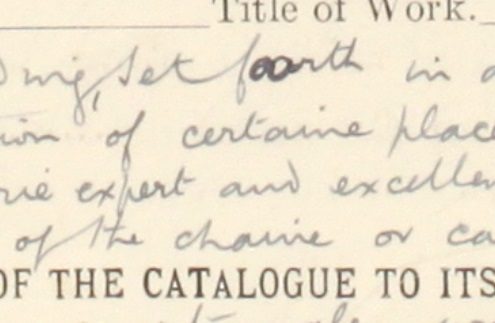 Title of Work.
set foorth in
of certaine place
expert and excellen
of the chaine or ca
OF THE CATALOGUE TO ITS